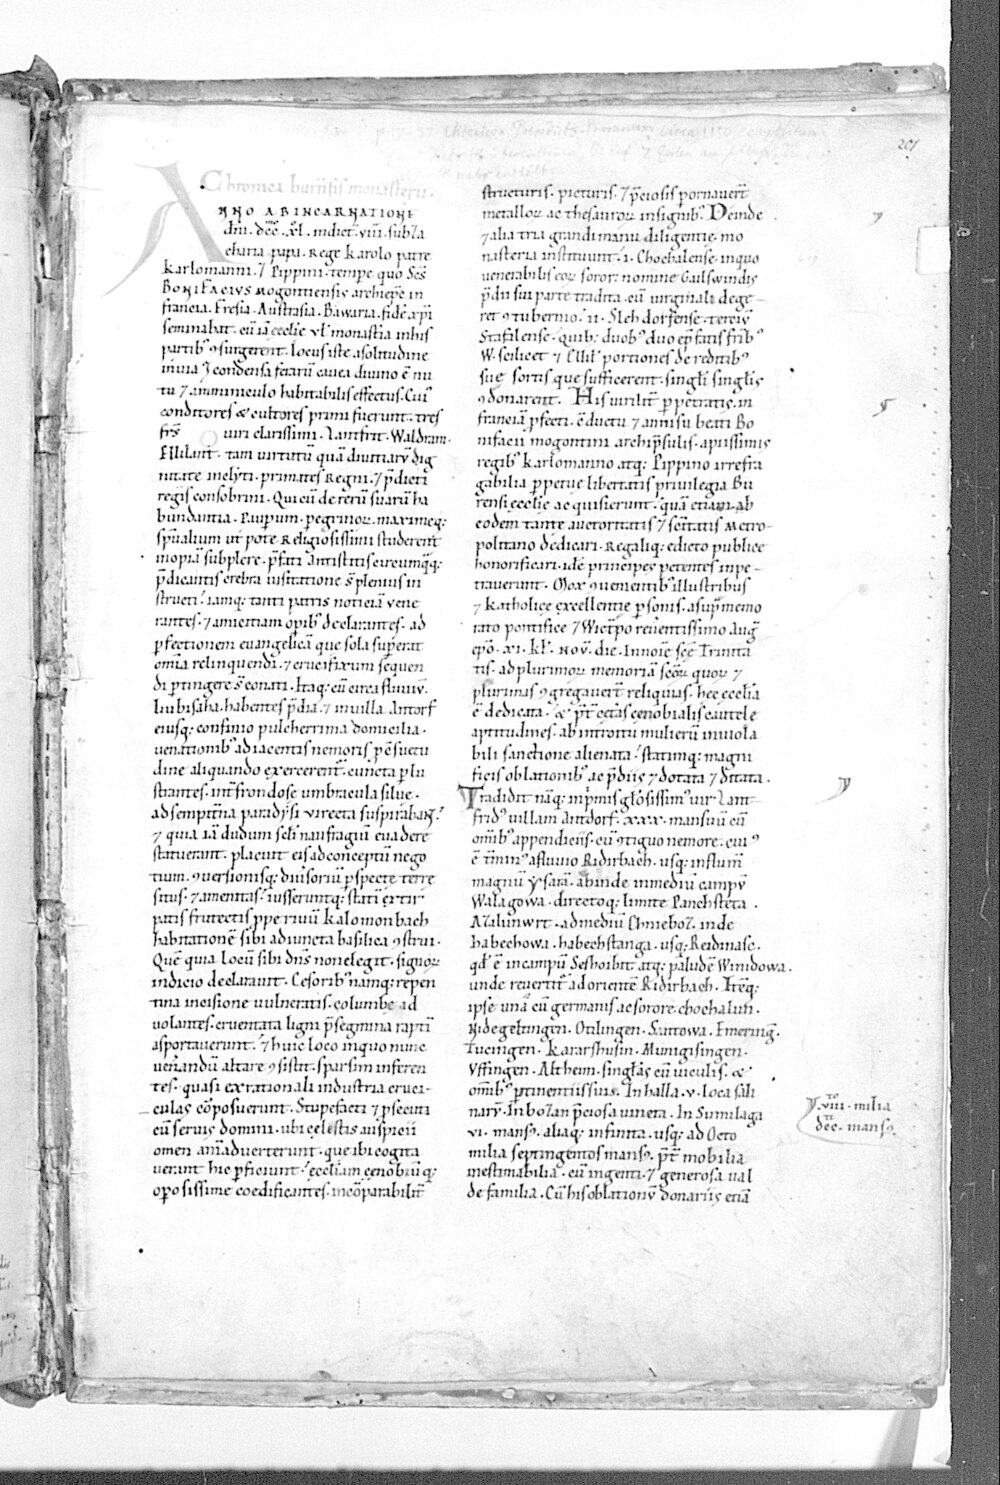 201
Chronica burīsis monasterii.
ANNO AB INCARNATIONE
dn̄i. dcc̄. xl. indict̄. viii. sub Za
charia papa. Rege karolo patre
karlomanni. ⁊ Pippini. tempr̄e quo Sc̄s
BONIFACIVS Mogontiensis archiep̄c in
francia. Fresia. Austrasia. Bawaria. fidē xp̄i
seminabat. cū iā ęcclię vl̓ monast̄ia in his
partib; ꝯsurgerent. locus iste a solitudine
inuia ⁊ condensa ferarū cauea diuino ē nu
tu ⁊ amminiculo habitabilis effectus. Cui᷒
conditores & cultores primi fuerunt. tres
fr̄s uiri clarissimi. Lantfrit. Waldram.
Ellilant. tam uirtutū quā diuitiarū dig
nitate inclyti. primates Regni. ⁊ p̄dicti
regis consobrini. Qui cū de rerū suarū ha
bundantia. Pauperum. peregrinoꝝ. maximeq;
sp̄ualium ut pote Religiosissimi studerent
inopiā subplere. p̄fati Antistitis circumq̄q;
p̄dicantis crebra uisitatione s̄ plenius in
structi. iamq; tanti patris noticiā vene
rantes. ⁊ amicitiam op̄ib; declarantes. ad
ꝑfectionem euangelicā que sola suꝑerat
om̄ia relinquendi. ⁊ crucifixum sequen
di ꝑtingere s̄ conati. Itaq; cū circa fluuiū.
Liubisaha. habentes p̄dia. ⁊ in uilla Antorf
eiusq; confinio pulcherrima domicilia.
uenationib; adiacentis nemoris ꝑ ēsuetu
dine aliquando exercerent. cuncta ꝑlu
strantes. int̄ frondose umbracula silue.
ad sempit̄na paradysi vireta suspirabant.
⁊ quia iā dudum sc̄li naufragiū euadere
statuerant. placuit eis ad conceptū nego
tium. ꝯuersionisq; diuisoriū ꝑspectę terrę
situs. ⁊ amenitas. iusseruntq; statī extir
patis frutectis ꝓpe riuū kalomonbach
habitationē sibi adiuncta basilica ꝯstrui.
Quē quia locū sibi dn̄s non elegit. signoꝝ
indicio declarauit. Cesorib; namq; repen
tina incisione uulneratis. columbę ad
uolantes. cruentata ligni p̄segmina raptī
asportauerunt. ⁊ huic loco in quo nunc
uenerandū altare ꝯsistit. sparsim inferen
tes. quasi ex rationali industria cruci
culas cōposuerunt. Stupefacti ⁊ p̄sciti
cū seruis domini. ubi cęlestis auspicii
omen anīaduerterunt. que ibi cogita
uerant hic perficiunt. ęccliam cenobiūq;
oposissime coedificantes. incōparabilit̄
structuris. picturis. ⁊ p̄ciosis pornauer̄t
metalloꝝ ac thesauroꝝ insignib;. Deinde
⁊ alia tria grandi manu diligentię. mo
nasteria instituunt. i. Chochalense. in quo
uenerabilis eoꝝ soror. nomine Gailswindis
p̄dii sui parte tradita. cū uirginali dege
ret ꝯtubernio. ii. Slehdorfense. terciū
Stafalense. quib; duob; duo ep̄ fatis frīb;
W. scilicet ⁊ Ellil̄ portiones de redditib;
suę sortis quę sufficerent. singl̄i singl̄is
ꝯdonarent. His uirilit̄ ꝑpetratis. in
franciā ꝓfecti. ē ductu ⁊ annisu beati Bo
nifacii mogontini archip̄sulis. a piissimis
regib; karlomanno atq; Pippino irrefra
gabilia ꝑpetuę libertatis priuilegia Bu
rensi ęcclię acquisierunt. quā etiam ab
eodem tantę auctoritatis ⁊ sc̄itatis Metro
politano dedicari. Regaliq; edicto publice
honorificari. idē principes petentes inpe
trauerunt. Mox ꝯuenientib; illustribus
⁊ katholicę excellentię ꝑsonis. a sup̄memo
rato pontifice ⁊ Wictꝑo reuerentissimo Aug̅
ep̄o. xi. kl̄. Nov̄. die. In noīe sc̄ę Trinita
tis. ad plurimoꝝ memoriā sc̄oꝝ quoꝝ ⁊
plurimas ꝯgregauer̄t reliquias. hęc ęcclia
ē dedicata. & p̄t ceteras cenobialis cautelę
aptitudines. ab introitu mulierū inuiola
bili sanctione alienata. statimq; magni
ficis oblationib; ac p̄diis ⁊ dotata ⁊ ditata.
Tradidit nāq; inp̄mis glōsissim᷒ uir. Lant
frid᷒ uillam Antdorf. xxx. mansuū cū
om̄ib; appendiciis. cū ꝯtiguo nemore. cui᷒
ē t̄min᷒ a fluuio Ridirbach. usq; in flum̄
magnū ysarā. ab inde in mediū campū
Walagowa. directoq; limite Panchsteta.
Azalunwrt. ad mediū Chnieboz. inde
habechowa. habechstanga. usq; Reidinasc.
qd̄ ē in campū Seshoibit atq; paludē Winidowa.
unde reuertit̄ ad orientē Ridirbach. Itēq;
ipse unā cū germanis ac sorore. chochalun.
Nidegeltingen. Otilingen. Sattowa. Emering̅.
Tucingen. kararshusin. Munigisingen.
Vffingen. Altheim. singl̄as cū uiculis. &
om̄ib; ꝑtinentiis suis. In halla. v. loca sali
narū. In bozan p̄ciosa uineta. In Sumilaga
vi. mans᷒. aliaq; infinita. usq; ad Octo
milia septingentos mans᷒. p̄t mobilia
inestimabilia. cū ingenti ⁊ generosa ual
de familia. Cū his oblationū donariis etiā
viii. milia
dcc. mans᷒.